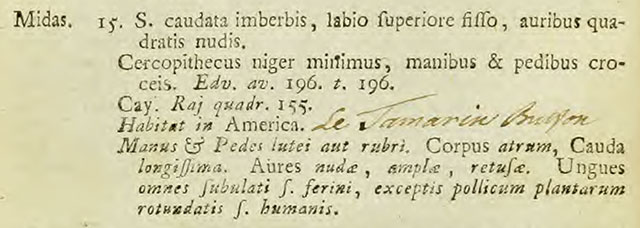 Midas. 15. S. caudata imberbis, labio ſuperiore fiſſo, auribus qua-
dratis nudis.
Cercopithecus niger minimus, manibus & pedibus cro-
ceis. Edv. av. 196. t. 196.
Cay. Raj quadr. 155.
Habitat in America. Le Tamarin Buffon
Manus & Pedes lutei aut rubri. Corpus atrum, Cauda
longiſſima. Aures nudæ, amplæ, retuſæ. Ungues
omnes ſubulati ſ. ferini, exceptis pollicum plantarum
rotundatis ſ. humanis.